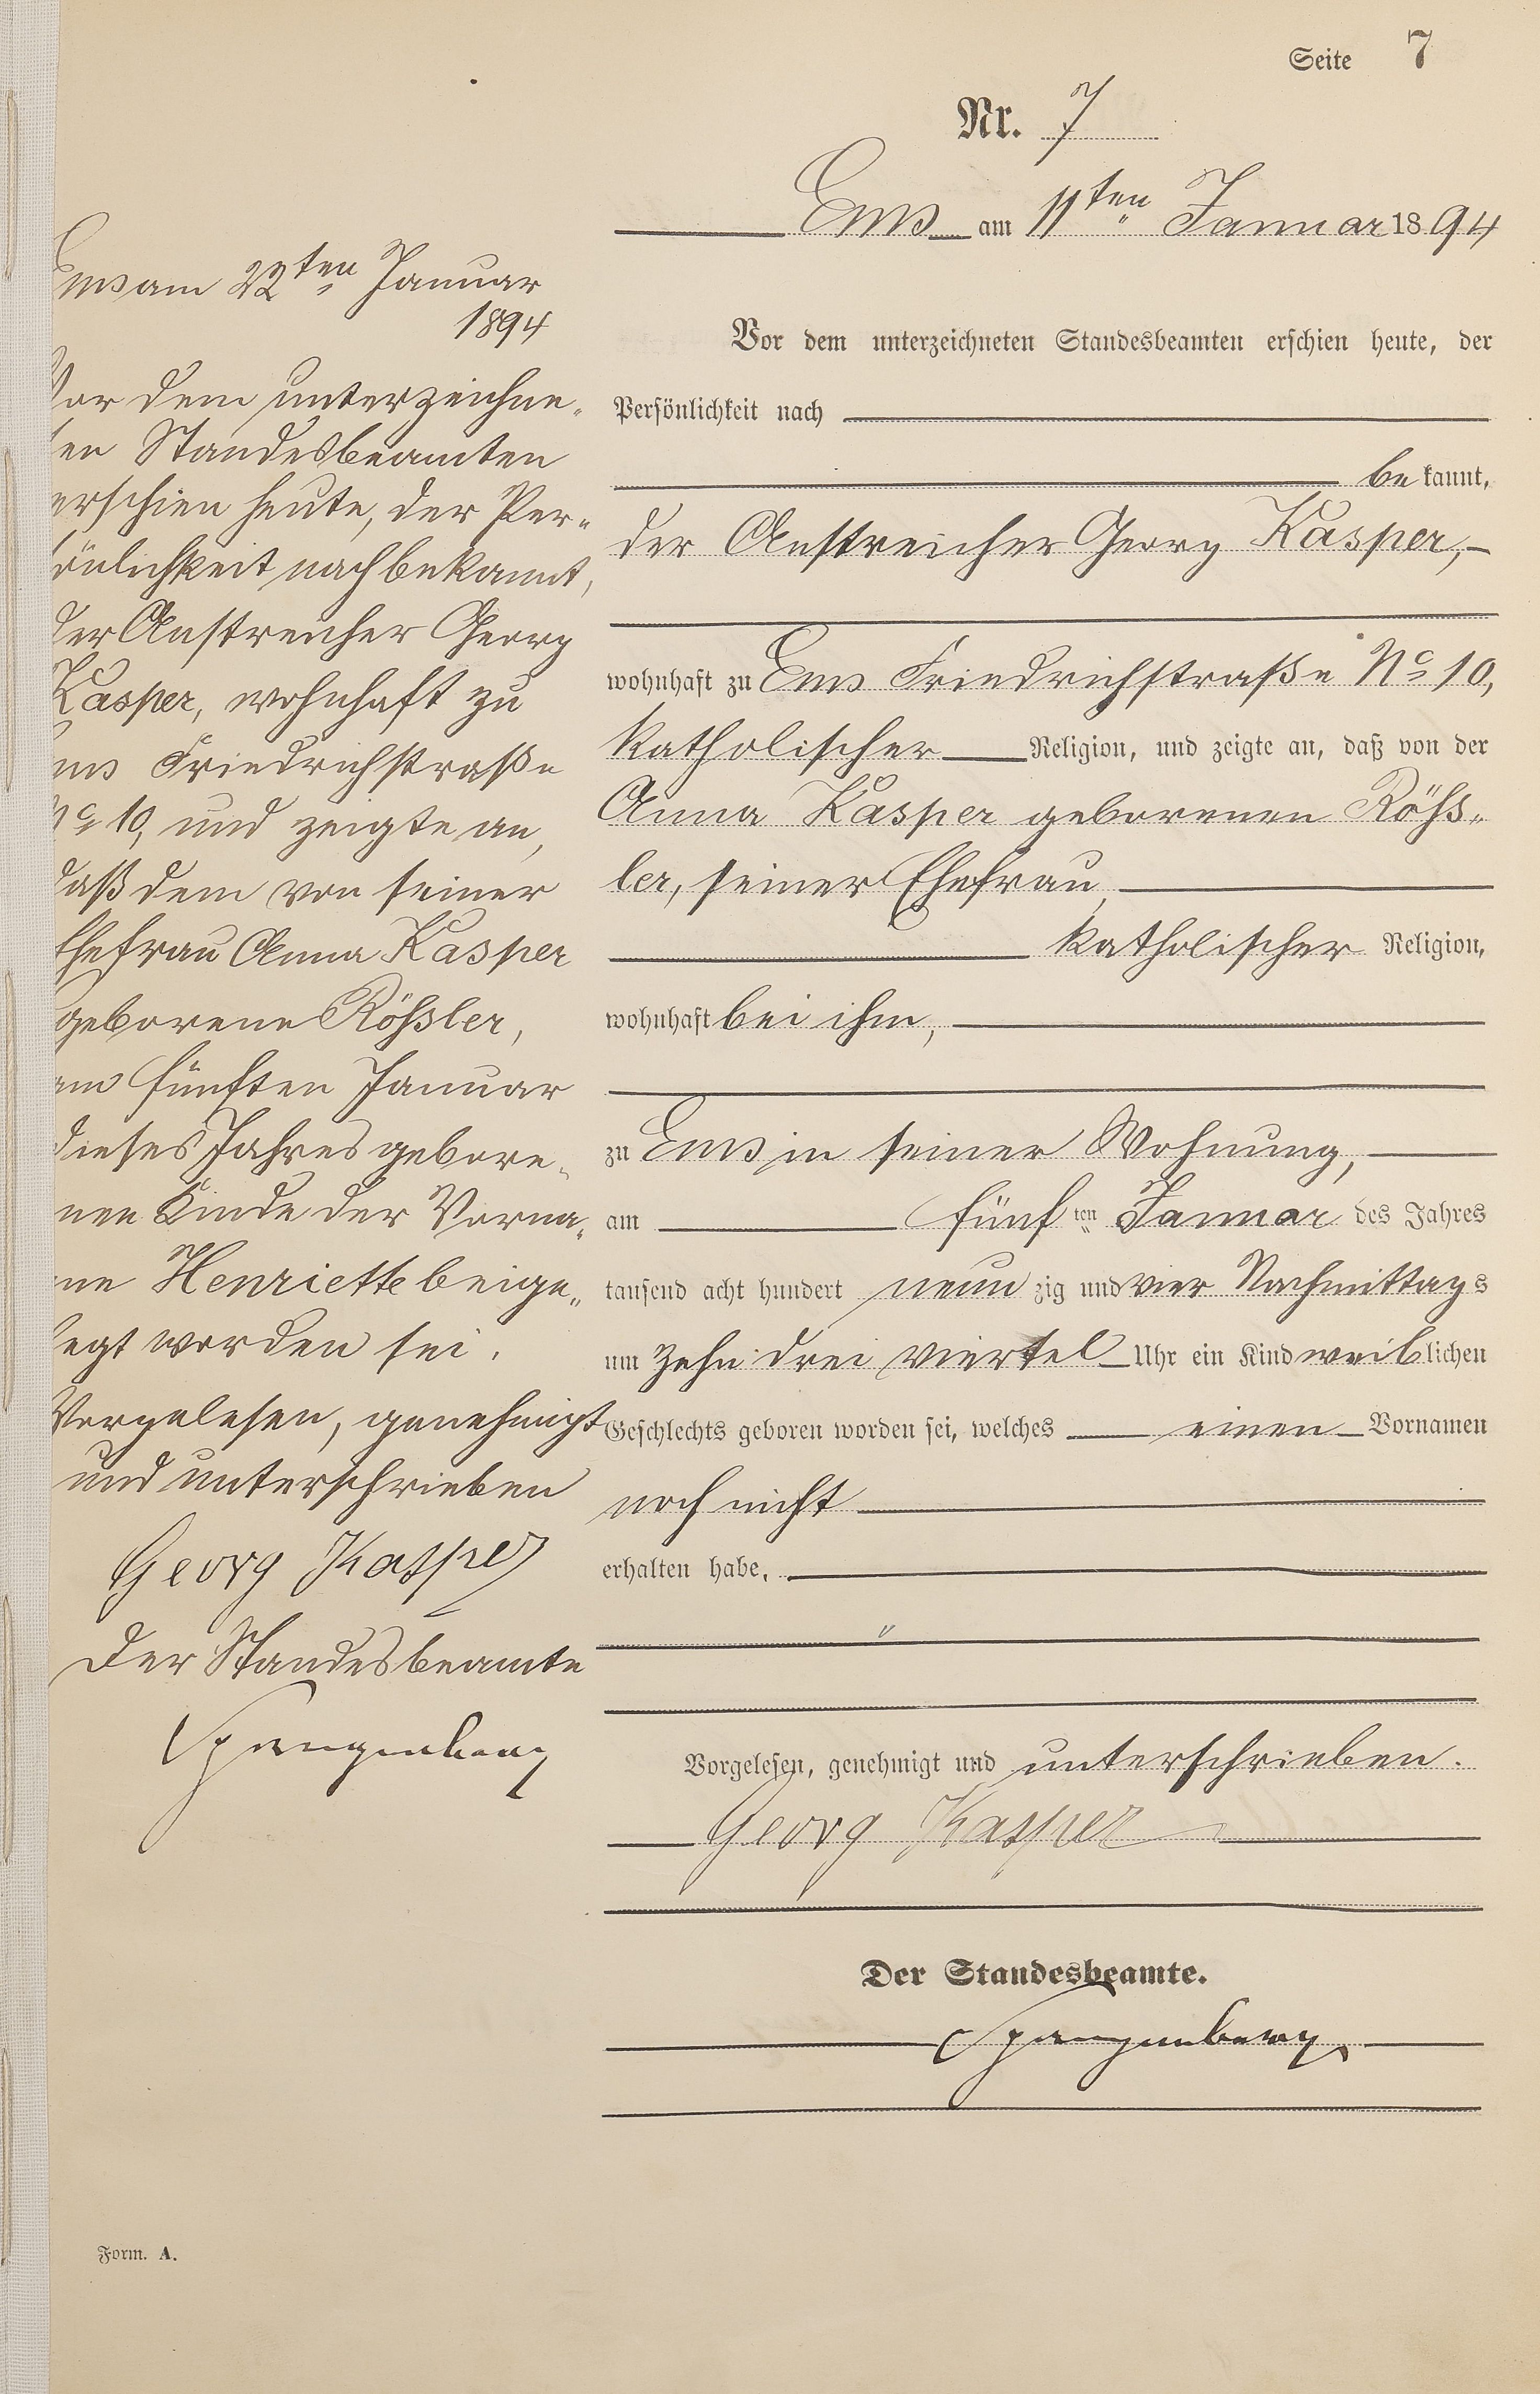 Seite 7
Nr. 7
Ems am 11ten Januar 1894
Vor dem unterzeichneten Standesbeamten erschien heute, der
Persönlichkeit nach
bekannt,
der Anstreicher Georg Kasper,
wohnhaft zu Ems Friedrichstraße No 10,
katholischer Religion, und zeigte an, daß von der
Anna Kasper geborenen Röß-
ler, seiner Ehefrau,
katholischer Religion,
wohnhaft bei ihm,
zu Ems in seiner Wohnung,
am fünften Januar des Jahres
tausend acht hundert neunzig und vier Nachmittags
um zehn drei viertel Uhr ein Kind weiblichen
Geschlechts geboren worden sei, welches einen Vornamen
noch nicht
erhalten habe.
Vorgelesen, genehmigt und unterschrieben.
Georg Kasper
Der Standesbeamte.
Spangenberg
Ems am 22ten Januar
1894
Vor dem unterzeichne-
ten Standesbeamten
erschien heute, der Per-
sönlichkeit nach bekannt,
der Anstreicher Georg
Kasper, wohnhaft zu
Ems Friedrichstraße
No 10, und zeigte an,
daß dem von seiner
Ehefrau Anna Kasper
geborene Rößler,
am fünften Januar
dieses Jahres gebore-
nen Kinde der Vorna-
me Henriette beige-
legt worden sei.
Vorgelesen, genehmigt
und unterschrieben
Georg Kasper
Der Standesbeamte
Spangenberg
Form. A.